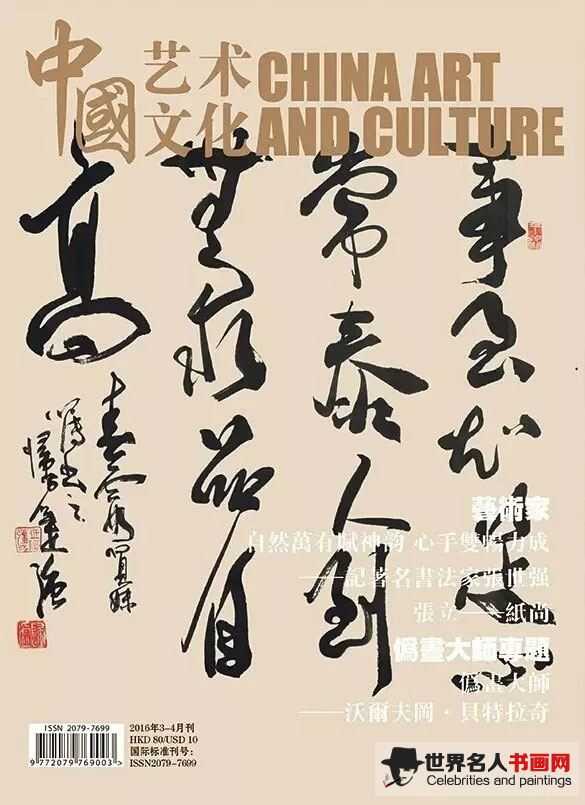 中國
艺术
文化
CHINA ART
AND CULTURE
事知足心
常泰人到
無求品自
高
藝術家
自然萬有賦神韵 心手雙暢力成
——記著名書法家張世强
張立——紙尚
偽畫大師專題
偽畫大師
——沃爾夫岡·貝特拉奇
ISSN 2079-7699
9 772079 769003 >
2016年3-4月刊
HKD 80/USD 10
国际标准刊号:
ISSN2079-7699
世界名人书画网
Celebrities and paintings